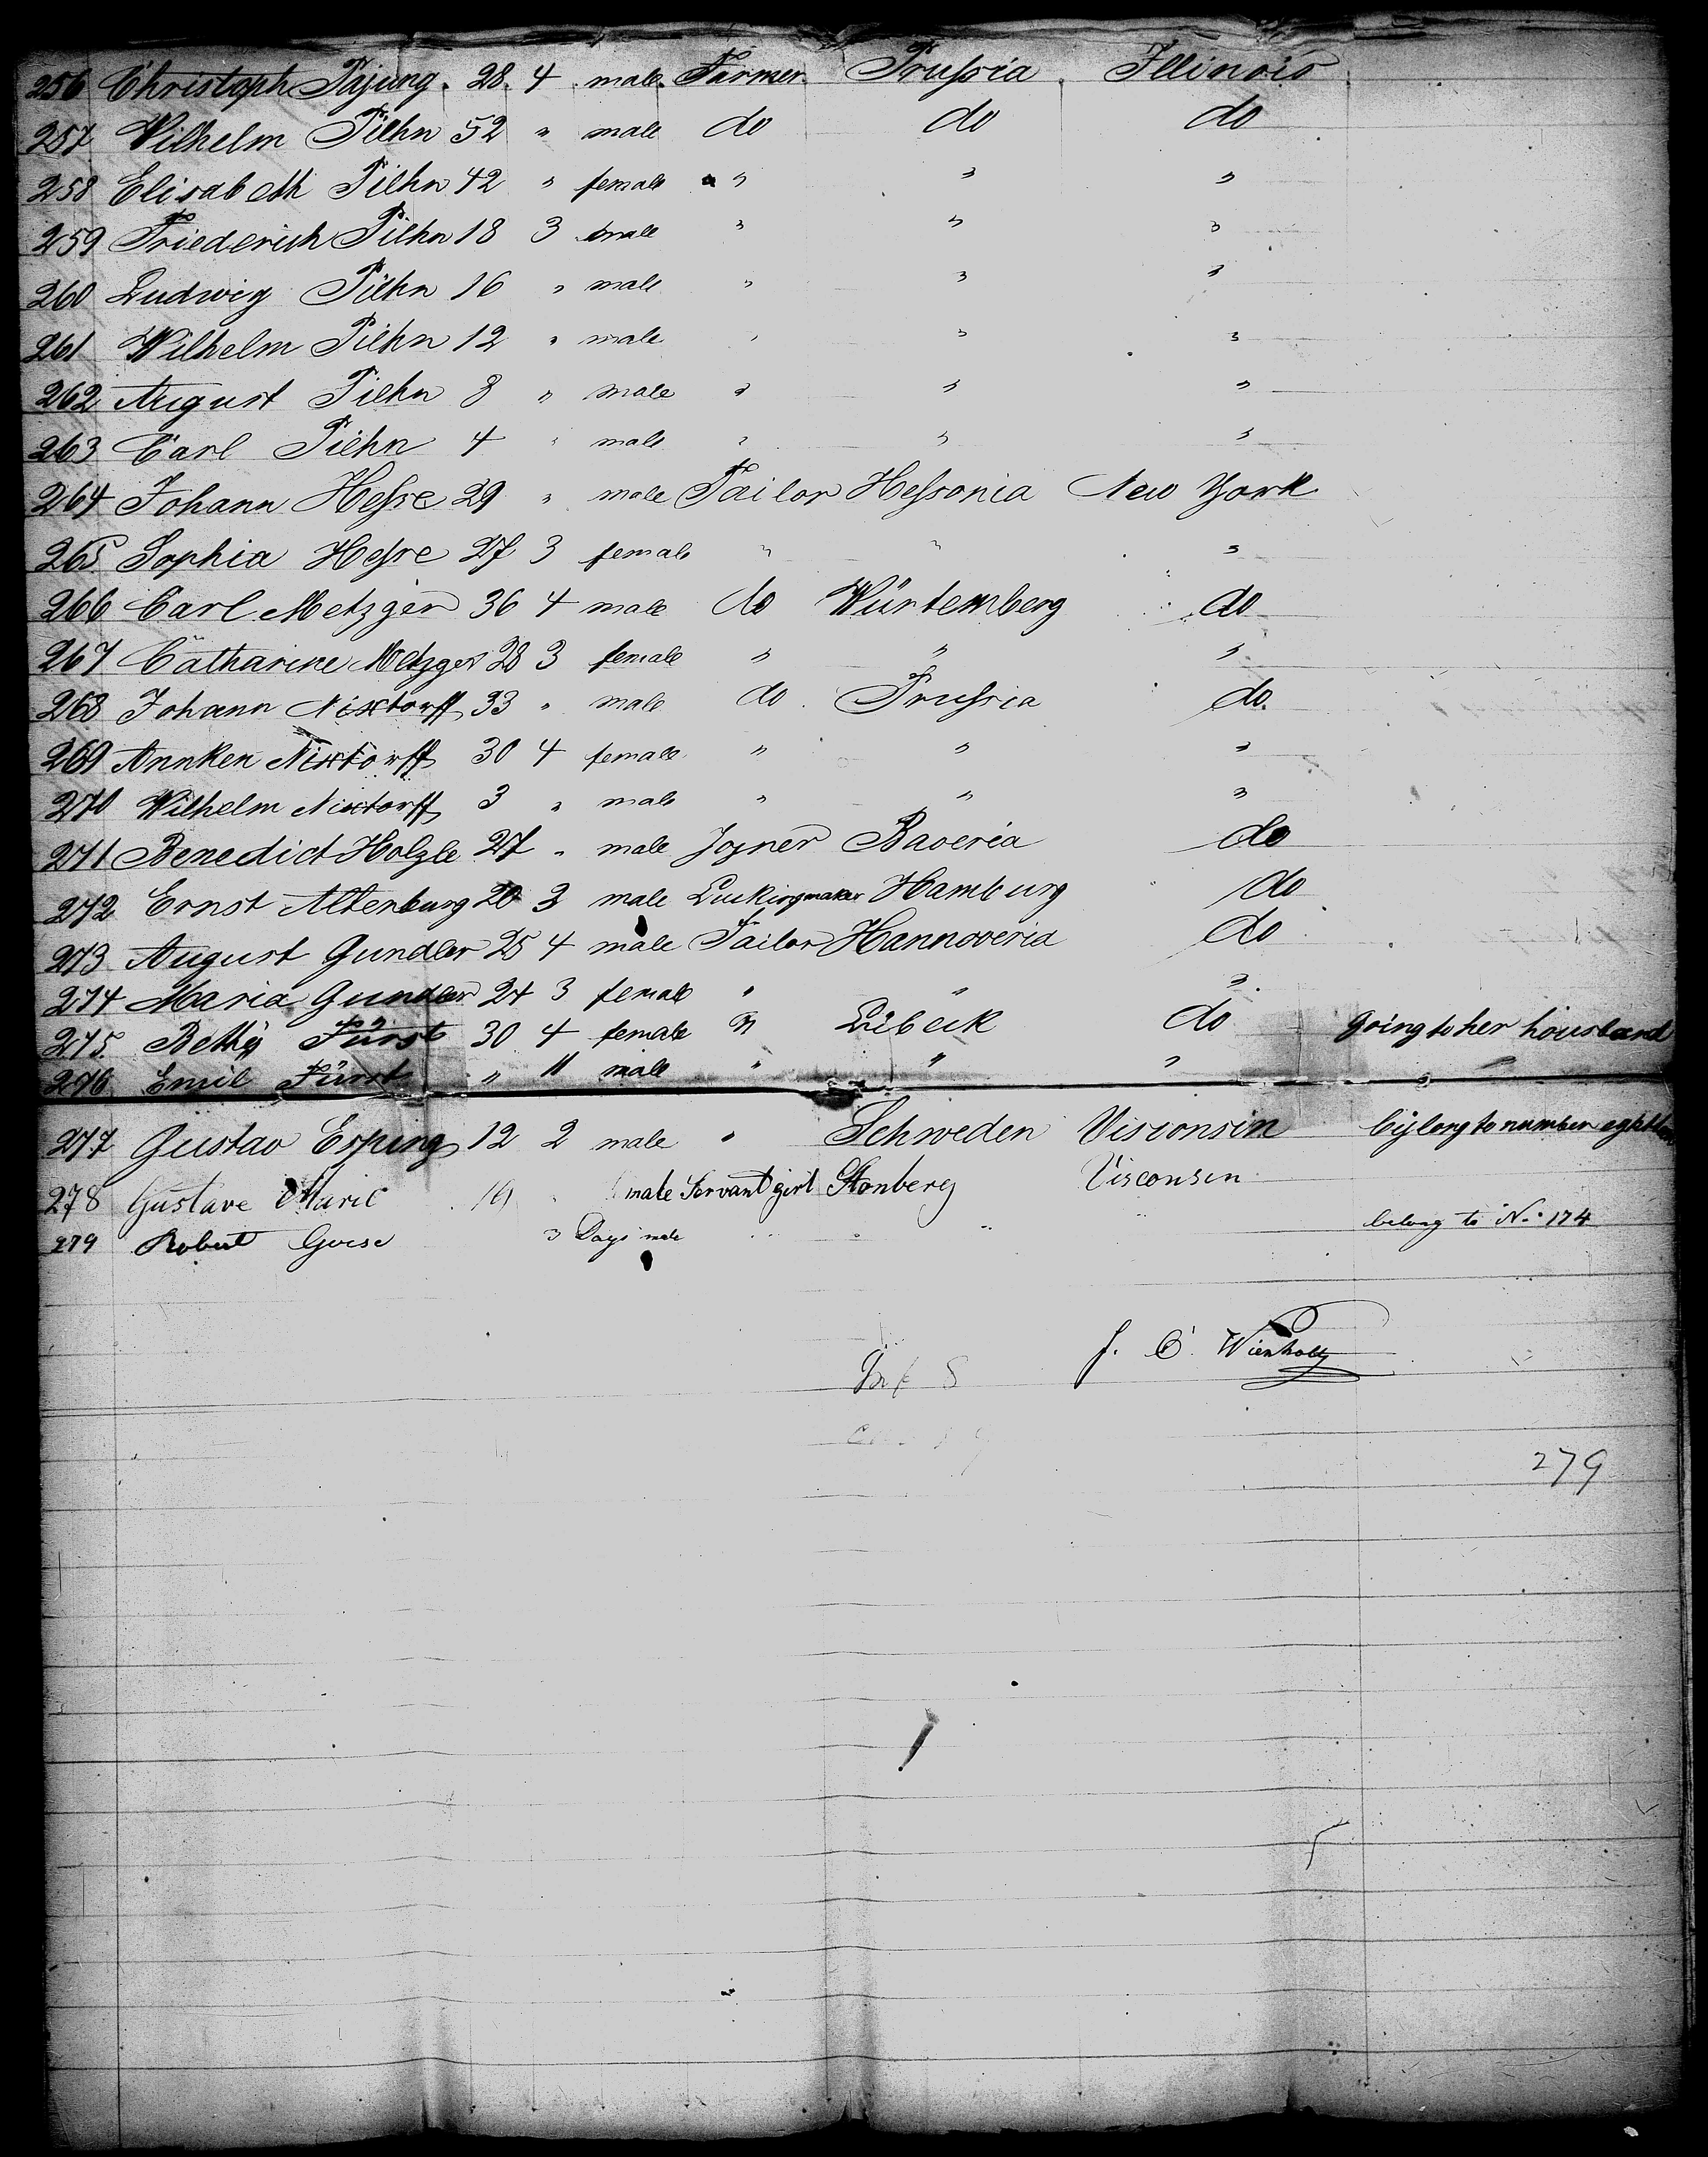 256 Christoph Pajung. 28. 4 male. Farmer. Prussia Illinois
257 Wilhelm Piehn 52 " male do do do
258 Elisabeth Piehn 42 " female " " "
259 Friederich Piehn 18 3 male " " "
260 Ludwig Piehn 16 " male " " "
261 Wilhelm Piehn 12 " male " " "
262 August Piehn 8 " male " " "
263 Carl Piehn 4 " male " " "
264 Johann Hesse 29 " male Tailor Hessonia New York
265 Sophia Hesse 27 3 female " " "
266 Carl Metzger 36 4 male do Würtemberg do
267 Catharine Metzger 28 3 female " " "
268 Johann Nixtorff 33 " male do Prussia do.
269 Annken Nixtorff 30 4 female " " "
270 Wilhelm Nixtorff 3 " male " " "
271 Benedict Holzle 27 " male Joyner Baveria do
272 Ernst Altenburg 20 3 male Hamburg do
273 August Gundler 25 4 male Tailor Hannoveria do
274 Maria Gundler 24 3 female " " "
275. Betty Fürst 30 4 female " Lübeck do going to her housband
276 Emil Fürst " 11 male " " " "
277 Gustav Esping 12 2 male " Schweden Visconsin bylong to number
278 Gustave Marie 19 male Servant girl Stonberg Visconsin
279 Robert Goese 3 Days male " " belong to No. 174
J. C. Wienholtz
279